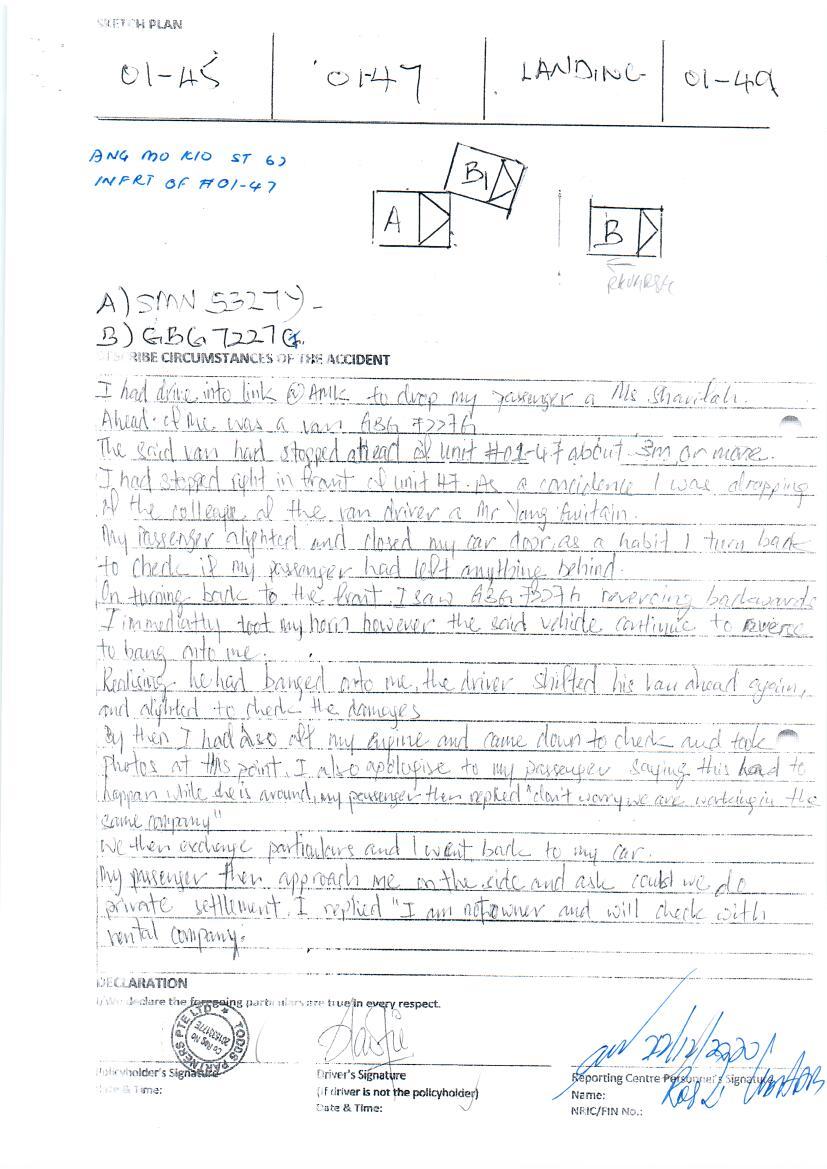 SKETCH PLAN
01-45 01-47 LANDING 01-49
ANG MO KIO ST 62
INFRT OF #01-47
A B1 B
REVERSE
A) SMN 5327Y
B) GBG 7227G
DESCRIBE CIRCUMSTANCES OF THE ACCIDENT
I had drive into link @AMK to drop my passenger a Ms
Ahead of me was a van GBG 7227G
The said van had stopped ahead of unit #01-47 about 3m or more.
I had stopped right in front of unit 47. As a concidence I was dropping
of the colleage of the van driver a Mr Yang
My Passenger alighted and closed my car door, as a habit I turn back
to check if my passenger had left anything behind.
On turning back to the front I saw GBG 7227G reversing backwards
I immediatly toot my horn however the said vehicle continue to reverse
to bang onto me.
Realising he had banged onto me, the driver shifted his van ahead again,
and alighted to check the damages
By then I had also off my engine and came down to check and took
photos at this point. I also apologise to my passenger saying this had to
happen while she is around, my passenger then replied "don't worry we are working in the
same company"
We then exchange particulars and I went back to my car.
My passenger then approach me on the side and ask could we do
private settlement. I replied "I am not owner and will check with
rental company.
DECLARATION
I/We declare the foregoing particulars are true in every respect.
TODDS PARTNERS PTE LTD
Co Reg No
201533177E
22/12/2020
Policyholder's Signature
Date & Time:
Driver's Signature
(if driver is not the policyholder)
Date & Time:
Reporting Centre Personnel's Signature
Name:
NRIC/FIN No.: